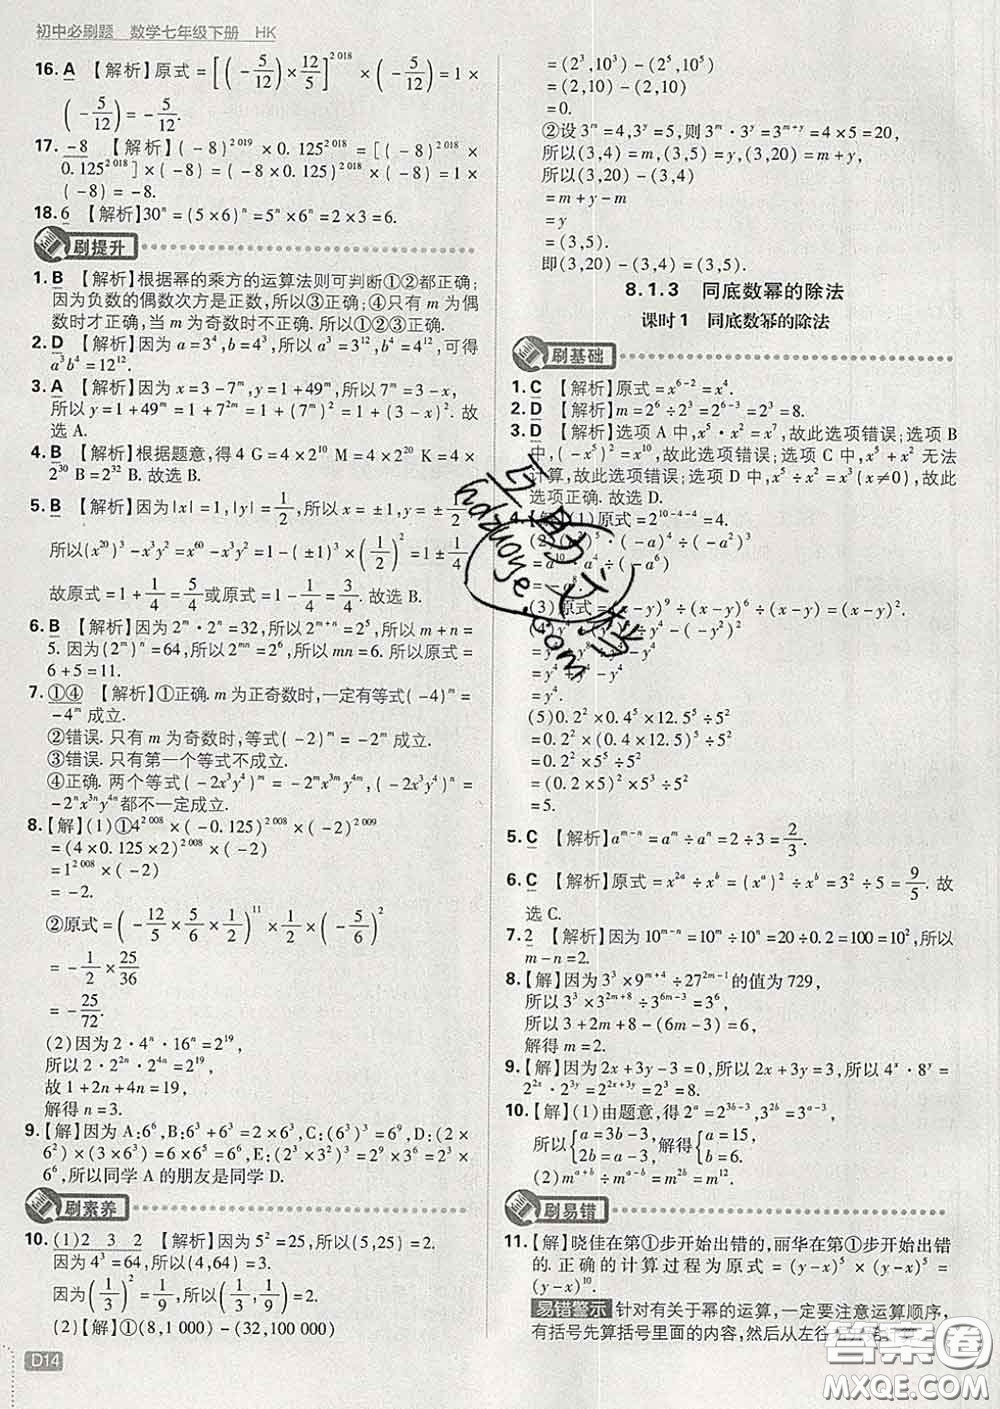 初中必刷题　数学七年级下册　HK
16. A 【解析】原式=[(-5/12)×12/5]^2 018×(-5/12)=1×
(-5/12)=-5/12.
17. -8 【解析】(-8)^2 019×0.125^2 018=[(-8)^2 018×
0.125^2 018]×(-8)=(-8×0.125)^2 018×(-8)=1×
(-8)=-8.
18. 6 【解析】30^n=(5×6)^n=5^n×6^n=2×3=6.
刷提升
1. B 【解析】根据幂的乘方的运算法则可判断①②都正确;
因为负数的偶数次方是正数,所以③正确;④只有m为偶
数时才正确,当m为奇数时不正确.故选B.
2. D 【解析】因为a=3^4,b=4^3,所以a^3=3^12,b^4=4^12,可得
a^3b^4=12^12.
3. A 【解析】因为x=3-7^m,y=1+49^m,所以7^m=3-x,
所以y=1+49^m=1+7^2m=1+(7^m)^2=1+(3-x)^2.故
选A.
4. B 【解析】根据题意,得4 G=4×2^10 M=4×2^20 K=4×
2^30 B=2^32 B.故选B.
5. B 【解析】因为|x|=1,|y|=1/2,所以x=±1,y=±1/2,
所以(x^20)^3-x^3y^2=x^60-x^3y^2=1-(±1)^3×(1/2)^2=1±1/4,
故原式=1+1/4=5/4或原式=1-1/4=3/4.故选B.
6. B 【解析】因为2^m·2^n=32,所以2^m+n=2^5,所以m+n=
5.因为(2^m)^n=64,所以2^mn=2^6,所以mn=6,所以原式=
6+5=11.
7. ①④ 【解析】①正确.m为正奇数时,一定有等式(-4)^m=
-4^m成立.
②错误.只有m为奇数时,等式(-2)^m=-2^m成立.
③错误.只有第一个等式不成立.
④正确.两个等式(-2x^3y^4)^m=-2^mx^3my^4m,(-2x^3y^4)^n=
-2^nx^3ny^4n都不一定成立.
8.【解】(1)①4^2 008×(-0.125)^2 008×(-2)^2 009
=(4×0.125×2)^2 008×(-2)
=1^2 008×(-2)
=-2.
②原式=(-12/5×5/6×1/2)^11×(-5/6)^2
=-1/2×25/36
=-25/72.
(2)因为2·4^n·16^n=2^19,
所以2·2^2n·2^4n=2^19,
故1+2n+4n=19,
解得n=3.
9.【解】因为A:6^6,B:6^3+6^3=2×6^3,C:(6^3)^3=6^9,D:(2×
6^2)×(3×6^3)=6×6^5=6^6,E:(2^2×3^2)^3=(6^2)^3=
6^6,所以同学A的朋友是同学D.
刷素养
10. (1)2　3　2 【解析】因为5^2=25,所以(5,25)=2.
因为4^3=64,所以(4,64)=3.
因为(1/3)^2=1/9,所以(1/3,1/9)=2.
(2)【解】①(8,1 000)-(32,100 000)
D14
=(2^3,10^3)-(2^5,10^5)
=(2,10)-(2,10)
=0.
②设3^m=4,3^y=5,则3^m·3^y=3^m+y=4×5=20,
所以(3,4)=m,(3,5)=y,(3,20)=m+y,
所以(3,20)-(3,4)
=m+y-m
=y
=(3,5).
即(3,20)-(3,4)=(3,5).
8.1.3　同底数幂的除法
课时1　同底数幂的除法
刷基础
1. C 【解析】原式=x^6-2=x^4.
2. D 【解析】m=2^6÷2^3=2^6-3=2^3=8.
3. D 【解析】选项A中,x^5·x^2=x^7,故此选项错误;选项B
中,(-x^5)^2=x^10,故此选项错误;选项C中,x^5+x^2无法
计算,故此选项错误;选项D中,x^5÷x^2=x^3(x≠0),故此
选项正确.故选D.
4.【解】(1)原式=2^10-4-4=4.
·(-a)^4÷(-a^2)^3
=a^10·a^4÷(-a^6)
(3)原式=(x-y)^9÷(x-y)^6÷(x-y)=(x-y)^2.
÷y^4-(-y^2)^2
=y^4+y^4-y^4
=y^4.
(5)0.2^2×0.4^5×12.5^5÷5^2
=0.2^2×(0.4×12.5)^5÷5^2
=0.2^2×5^5÷5^2
=(0.2×5)^2×5^3÷5^2
=5.
5. C 【解析】a^m-n=a^m÷a^n=2÷3=2/3.
6. C 【解析】原式=x^2a÷x^b=(x^a)^2÷x^b=3^2÷5=9/5.故
选C.
7. 2 【解析】因为10^m-n=10^m÷10^n=20÷0.2=100=10^2,所以
m-n=2.
8.【解】因为3^3×9^m+4÷27^2m-1的值为729,
所以3^3×3^2m+8÷3^6m-3=3^6,
所以3+2m+8-(6m-3)=6,
解得m=2.
9.【解】因为2x+3y-3=0,所以2x+3y=3,所以4^x·8^y=
2^2x·2^3y=2^2x+3y=2^3=8.
10.【解】(1)由题意,得2^a=2^3b-3,3^2b=3^a-3,
所以{a=3b-3, 2b=a-3,解得{a=15, b=6.
(2)m^a+b÷m^a-b=m^2b=m^12.
刷易错
11.【解】晓佳在第①步开始出错的,丽华在第①步开始出错
的.正确的计算过程为原式=(y-x)^5×(y-x)^5=
(y-x)^10.
易错警示 针对有关于幂的运算,一定要注意运算顺序,
有括号先算括号里面的内容,然后从左往
hdzuoye.com
答案圈
MXQE.COM